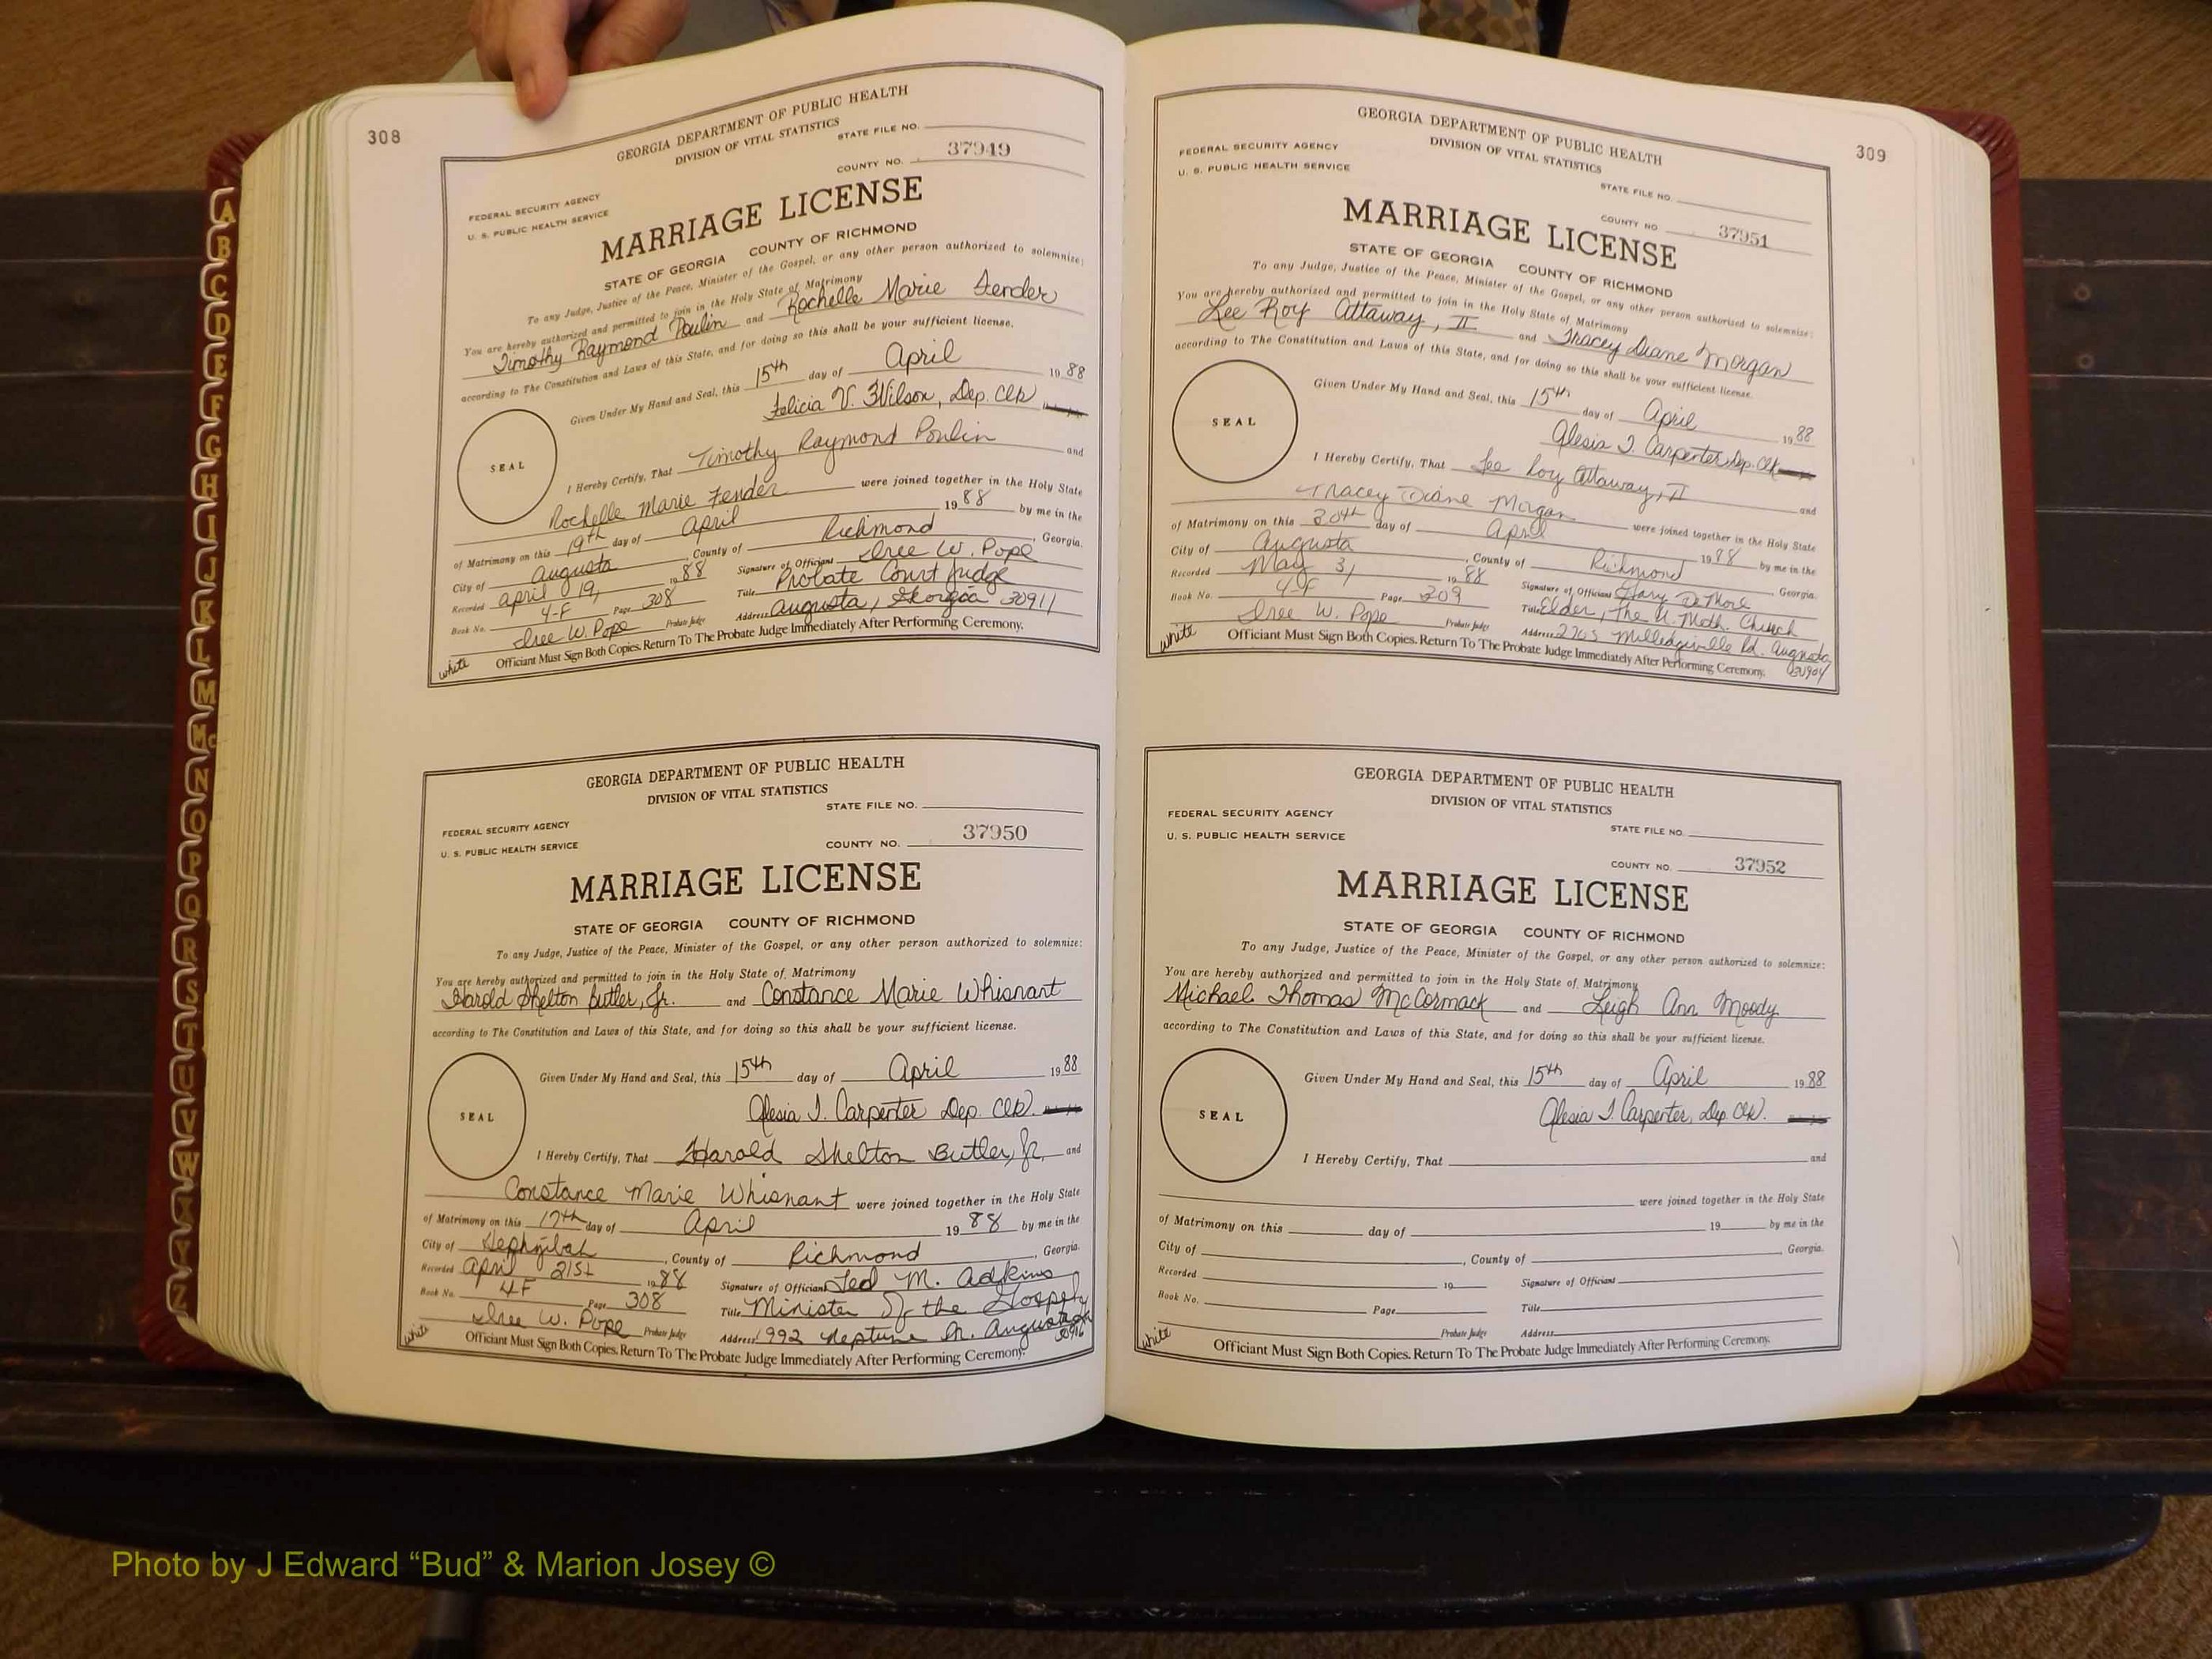 308
GEORGIA DEPARTMENT OF PUBLIC HEALTH
DIVISION OF VITAL STATISTICS
STATE FILE NO.
COUNTY NO. 37949
FEDERAL SECURITY AGENCY
U. S. PUBLIC HEALTH SERVICE
MARRIAGE LICENSE
STATE OF GEORGIA COUNTY OF RICHMOND
To any Judge, Justice of the Peace, Minister of the Gospel, or any other person authorized to solemnize:
You are hereby authorized and permitted to join in the Holy State of Matrimony
Timothy Raymond Poulin and Rochelle Marie Fender
according to The Constitution and Laws of this State, and for doing so this shall be your sufficient license.
Given Under My Hand and Seal, this 15th day of April 19 88
Felicia V. Wilson, Dep. Clk
SEAL
I Hereby Certify, That Timothy Raymond Poulin and
Rochelle Marie Fender were joined together in the Holy State
of Matrimony on this 19th day of April 19 88 by me in the
City of Augusta, County of Richmond, Georgia.
Recorded April 19, 19 88 Signature of Officiant Iree W. Pope
Book No. 4-F Page 308 Title Probate Court Judge
Iree W. Pope Probate Judge Address Augusta, Georgia 30911
white Officiant Must Sign Both Copies. Return To The Probate Judge Immediately After Performing Ceremony.
GEORGIA DEPARTMENT OF PUBLIC HEALTH
DIVISION OF VITAL STATISTICS
STATE FILE NO.
FEDERAL SECURITY AGENCY
U. S. PUBLIC HEALTH SERVICE
COUNTY NO. 37950
MARRIAGE LICENSE
STATE OF GEORGIA COUNTY OF RICHMOND
To any Judge, Justice of the Peace, Minister of the Gospel, or any other person authorized to solemnize:
You are hereby authorized and permitted to join in the Holy State of Matrimony
Harold Shelton Butler, Jr. and Constance Marie Whisnant
according to The Constitution and Laws of this State, and for doing so this shall be your sufficient license.
Given Under My Hand and Seal, this 15th day of April 19 88
Alesia J. Carpenter Dep. Clk.
SEAL
I Hereby Certify, That Harold Shelton Butler, Jr. and
Constance Marie Whisnant were joined together in the Holy State
of Matrimony on this 17th day of April 19 88 by me in the
City of Hephzibah, County of Richmond, Georgia.
Recorded April 21st 19 88 Signature of Officiant Ted M. Adkins
Book No. 4F Page 308 Title Minister Of the Gospel
Iree W. Pope Probate Judge Address 1992 Neptune Dr. Augusta
white Officiant Must Sign Both Copies. Return To The Probate Judge Immediately After Performing Ceremony.
309
GEORGIA DEPARTMENT OF PUBLIC HEALTH
DIVISION OF VITAL STATISTICS
FEDERAL SECURITY AGENCY
U. S. PUBLIC HEALTH SERVICE
STATE FILE NO.
COUNTY NO 37951
MARRIAGE LICENSE
STATE OF GEORGIA COUNTY OF RICHMOND
To any Judge, Justice of the Peace, Minister of the Gospel, or any other person authorized to solemnize:
You are hereby authorized and permitted to join in the Holy State of Matrimony
Lee Roy Attaway, II and Tracey Diane Morgan
according to The Constitution and Laws of this State, and for doing so this shall be your sufficient license.
Given Under My Hand and Seal, this 15th day of April 19 88
Alesia J. Carpenter Dep. Clk
SEAL
I Hereby Certify, That Lee Roy Attaway, II and
Tracey Diane Morgan were joined together in the Holy State
of Matrimony on this 30th day of April 19 88 by me in the
City of Augusta, County of Richmond, Georgia.
Recorded May 31 19 88 Signature of Officiant Gary
Book No. 4-F Page 309 Title Elder, The U. Meth. Church
Iree W. Pope Probate Judge Address Milledgeville Rd. Augusta
30904
white Officiant Must Sign Both Copies. Return To The Probate Judge Immediately After Performing Ceremony.
GEORGIA DEPARTMENT OF PUBLIC HEALTH
DIVISION OF VITAL STATISTICS
FEDERAL SECURITY AGENCY
U. S. PUBLIC HEALTH SERVICE
STATE FILE NO.
COUNTY NO. 37952
MARRIAGE LICENSE
STATE OF GEORGIA COUNTY OF RICHMOND
To any Judge, Justice of the Peace, Minister of the Gospel, or any other person authorized to solemnize:
You are hereby authorized and permitted to join in the Holy State of Matrimony
Michael Thomas McCormack and Leigh Ann Moody
according to The Constitution and Laws of this State, and for doing so this shall be your sufficient license.
Given Under My Hand and Seal, this 15th day of April 19 88
Alesia J Carpenter, Dep. Clk.
SEAL
I Hereby Certify, That and
were joined together in the Holy State
of Matrimony on this day of 19 by me in the
City of , County of , Georgia.
Recorded 19 Signature of Officiant
Book No. Page Title
Probate Judge Address
white Officiant Must Sign Both Copies. Return To The Probate Judge Immediately After Performing Ceremony.
A
B
C
D
E
F
G
H
I
J
K
L
M
Mc
N
O
P
Q
R
S
T
U
V
W
X
Y
Z
Photo by J Edward “Bud” & Marion Josey ©